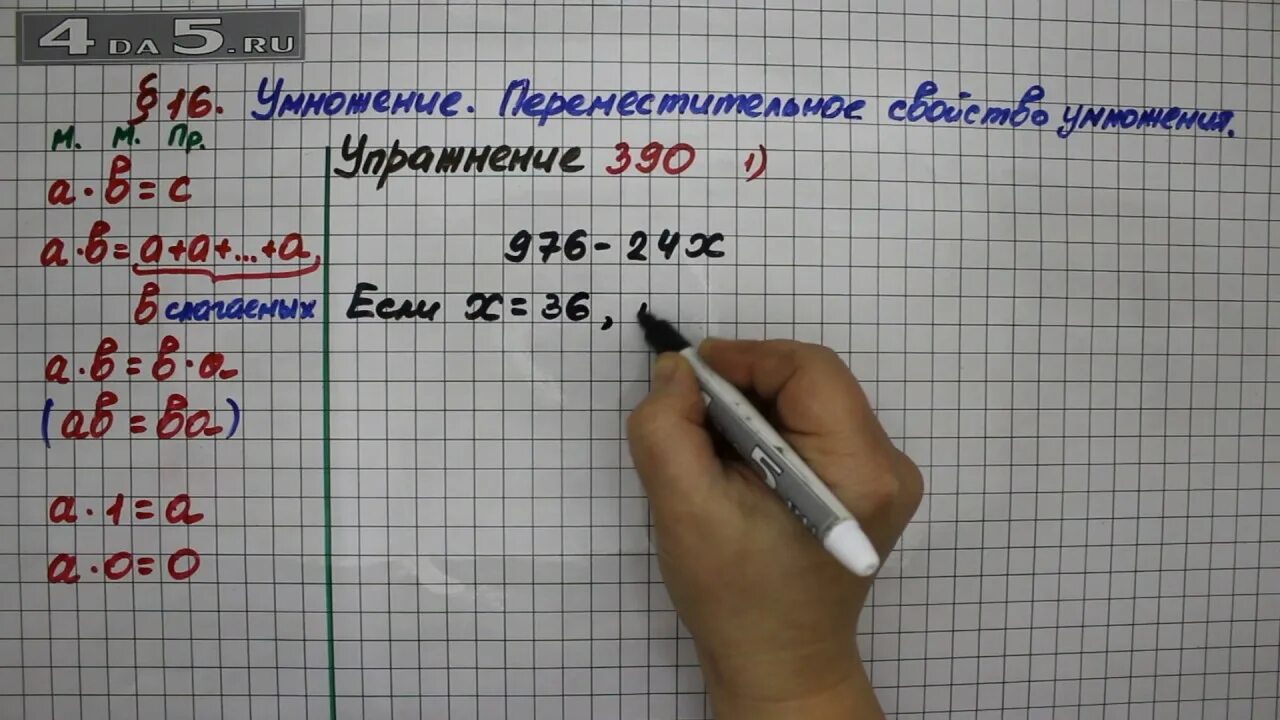 4DA5.RU
§ 16. Умножение. Переместительное свойство умножения.
м. м. Пр.
a · в = c
a · в = a + a + ... + a,
в слагаемых
a · в = в · a
(aв = вa)
a · 1 = a
a · 0 = 0
Упражнение 390 1)
976 - 24x
Если x = 36,
5